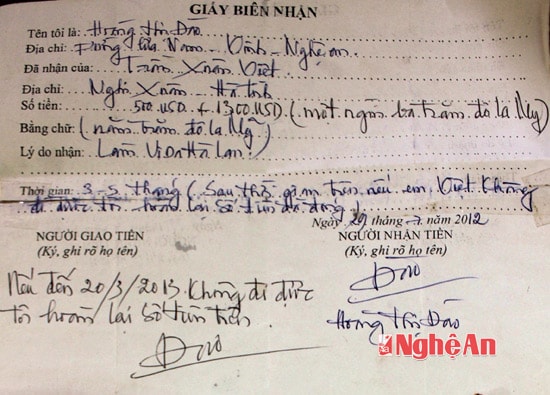 GIẤY BIÊN NHẬN
Tên tôi là: Hoàng Thị Đào
Địa chỉ: Cửa Nam - Vinh - Nghệ an
Đã nhận của: Trần Xuân Việt
Địa chỉ: Nghi Xuân - Hà Tĩnh
Số tiền: 500 USD + 1300 USD (một ngàn ba trăm đô la Mỹ)
Bằng chữ: (năm trăm đô la Mỹ)
Lý do nhận: Làm Visa Hà Lan
Thời gian: 3-5 tháng (Sau thời gian trên nếu em Việt không
đi được tôi hoàn lại số tiền đã đóng)
Ngày 29 tháng 7 năm 2012
NGƯỜI GIAO TIỀN
(Ký, ghi rõ họ tên)
NGƯỜI NHẬN TIỀN
(Ký, ghi rõ họ tên)
Đào
Hoàng Thị Đào
Nếu đến 20/3/2013 không đi được
tôi hoàn lại số tiền trên.
Đào
Nghệ An